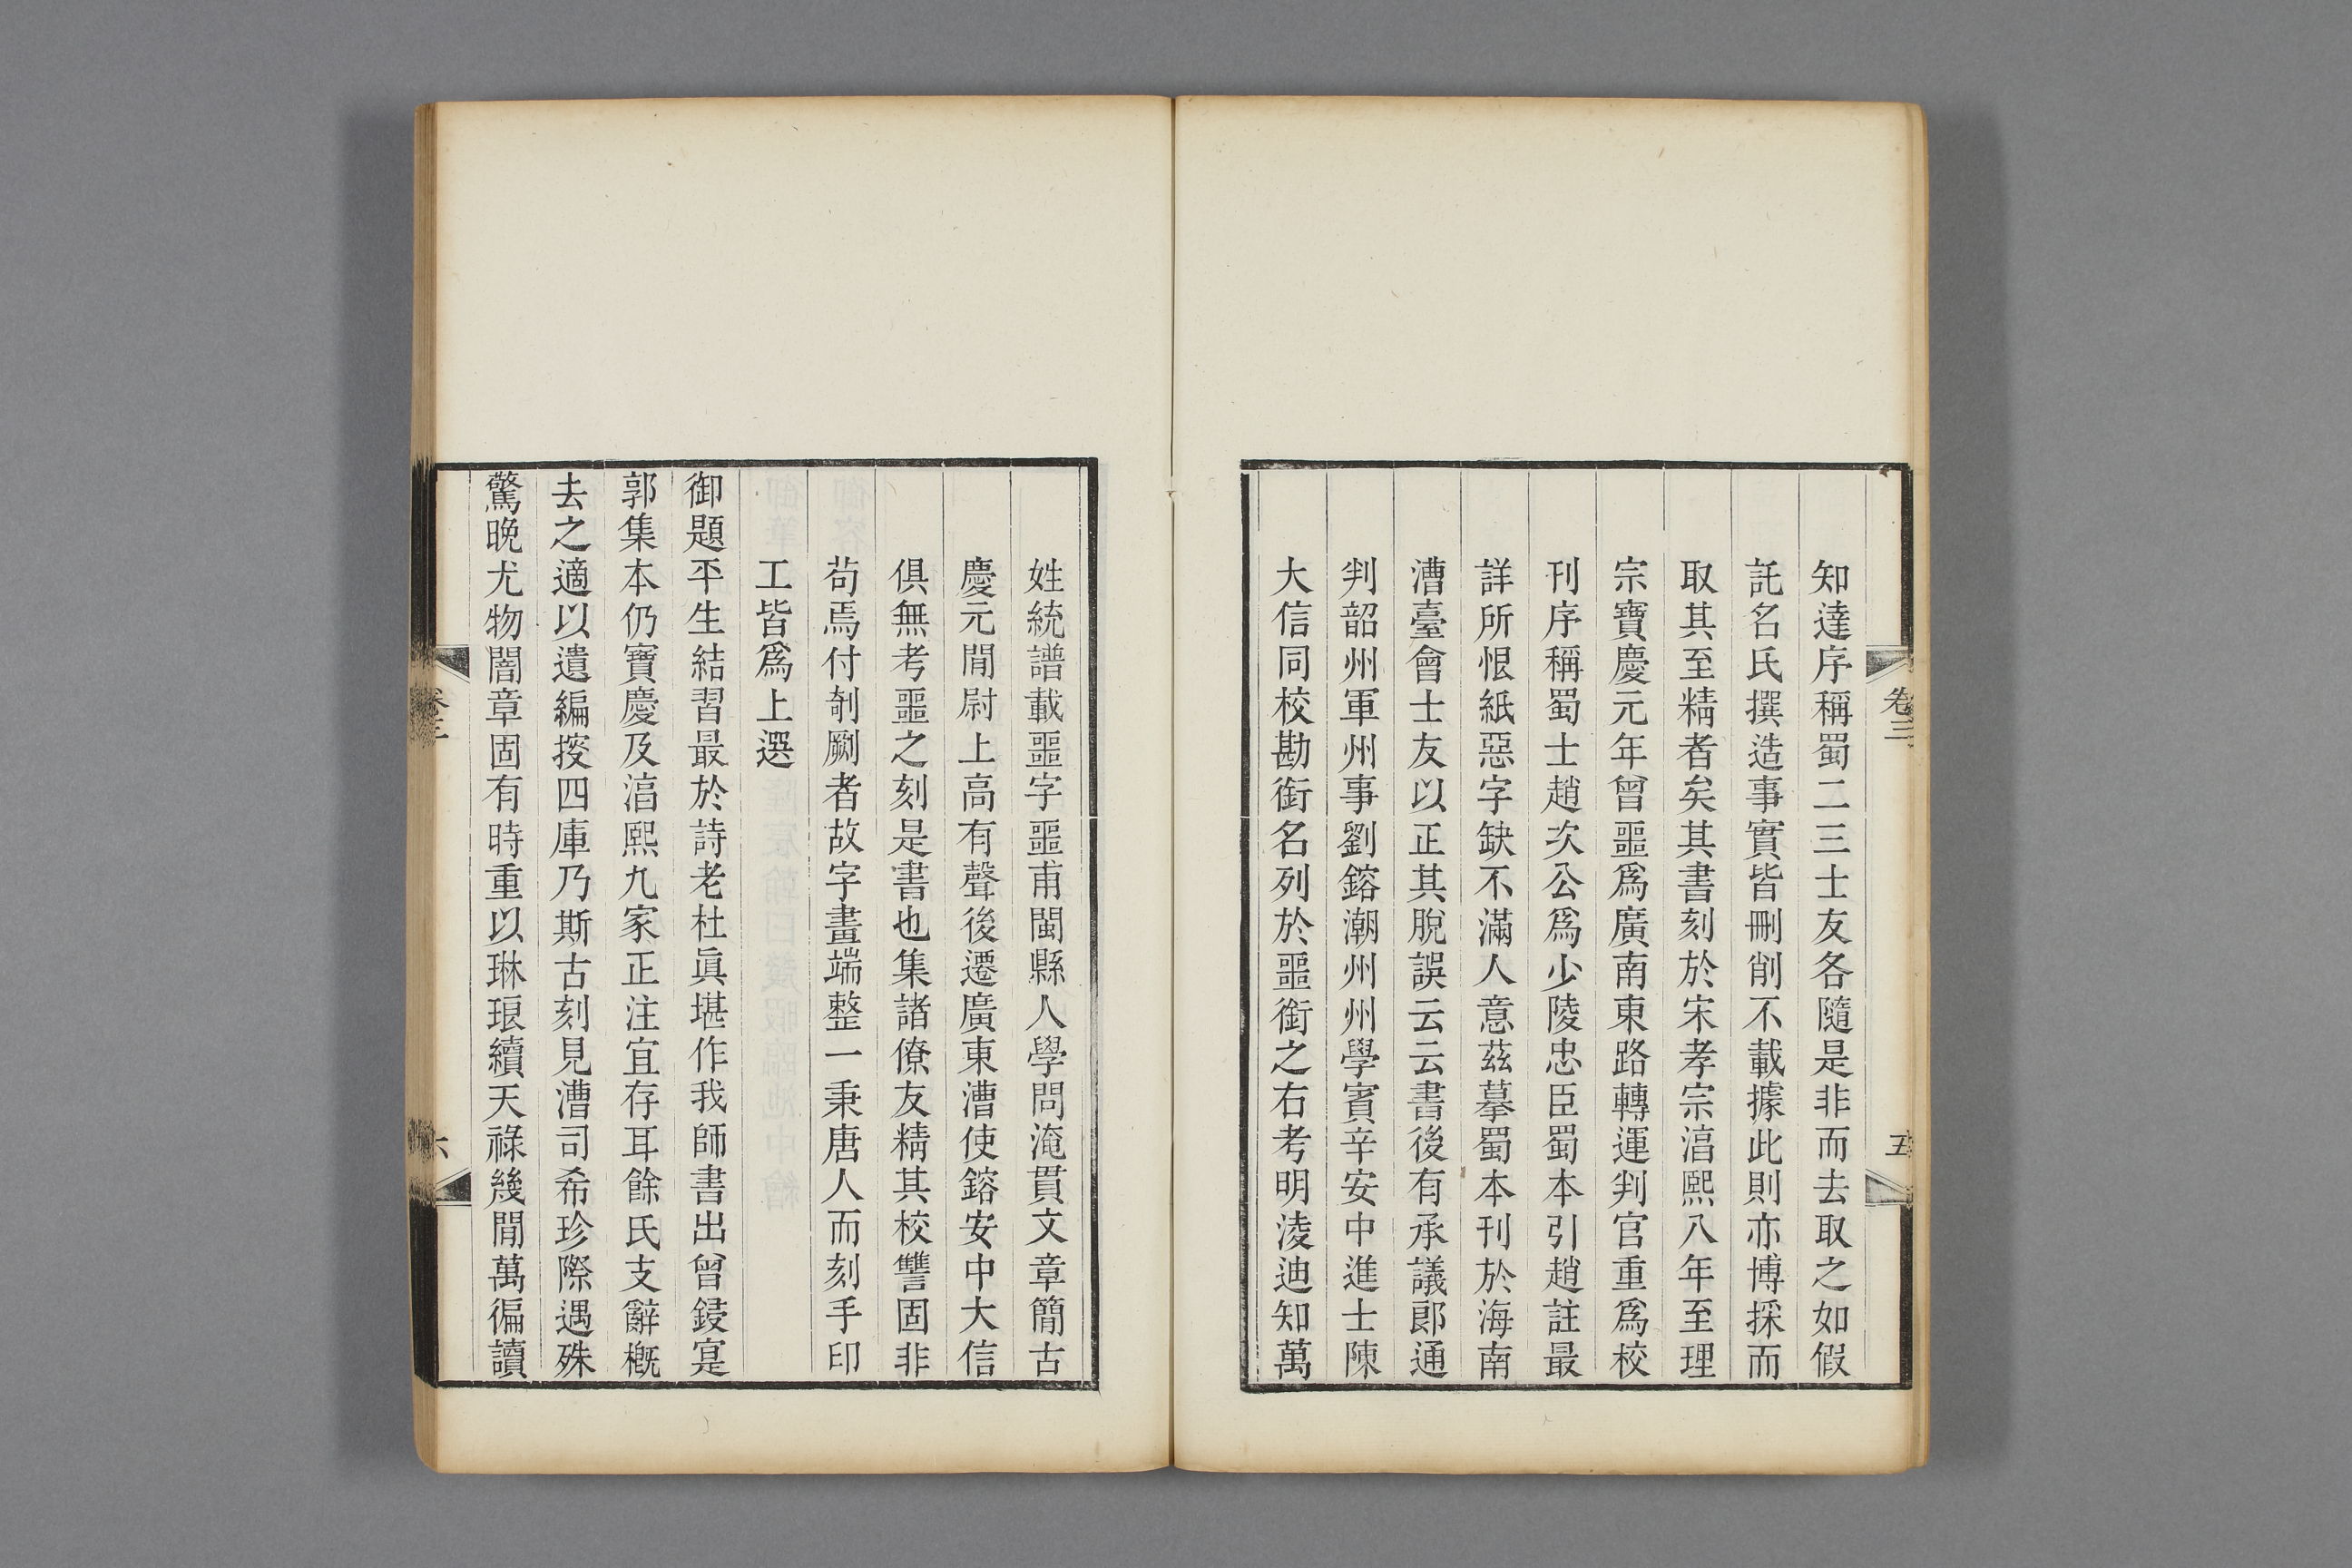 卷三
五
知達序稱蜀二三士友各隨是非而去取之如假
託名氏撰造事實皆刪削不載據此則亦博採而
取其至精者矣其書刻於宋孝宗湻熙八年至理
宗寶慶元年曾噩爲廣南東路轉運判官重爲校
刊序稱蜀士趙次公爲少陵忠臣蜀本引趙註最
詳所恨紙惡字缺不滿人意茲摹蜀本刊於海南
漕臺會士友以正其脫誤云云書後有承議郎通
判韶州軍州事劉鎔潮州州學賓辛安中進士陳
大信同校勘銜名列於噩銜之右考明淩迪知萬
姓統譜載噩字噩甫閩縣人學問淹貫文章簡古
慶元閒尉上高有聲後遷廣東漕使鎔安中大信
俱無考噩之刻是書也集諸僚友精其校讐固非
苟焉付剞劂者故字畫端整一秉唐人而刻手印
工皆爲上選
御題平生結習最於詩老杜眞堪作我師書出曾鋟寔
郭集本仍寶慶及湻熙九家正注宜存耳餘氏支辭槪
去之適以遺編挍四庫乃斯古刻見漕司希珍際遇殊
驚晚尤物闇章固有時重以琳琅續天祿幾閒萬徧讀
卷三
六